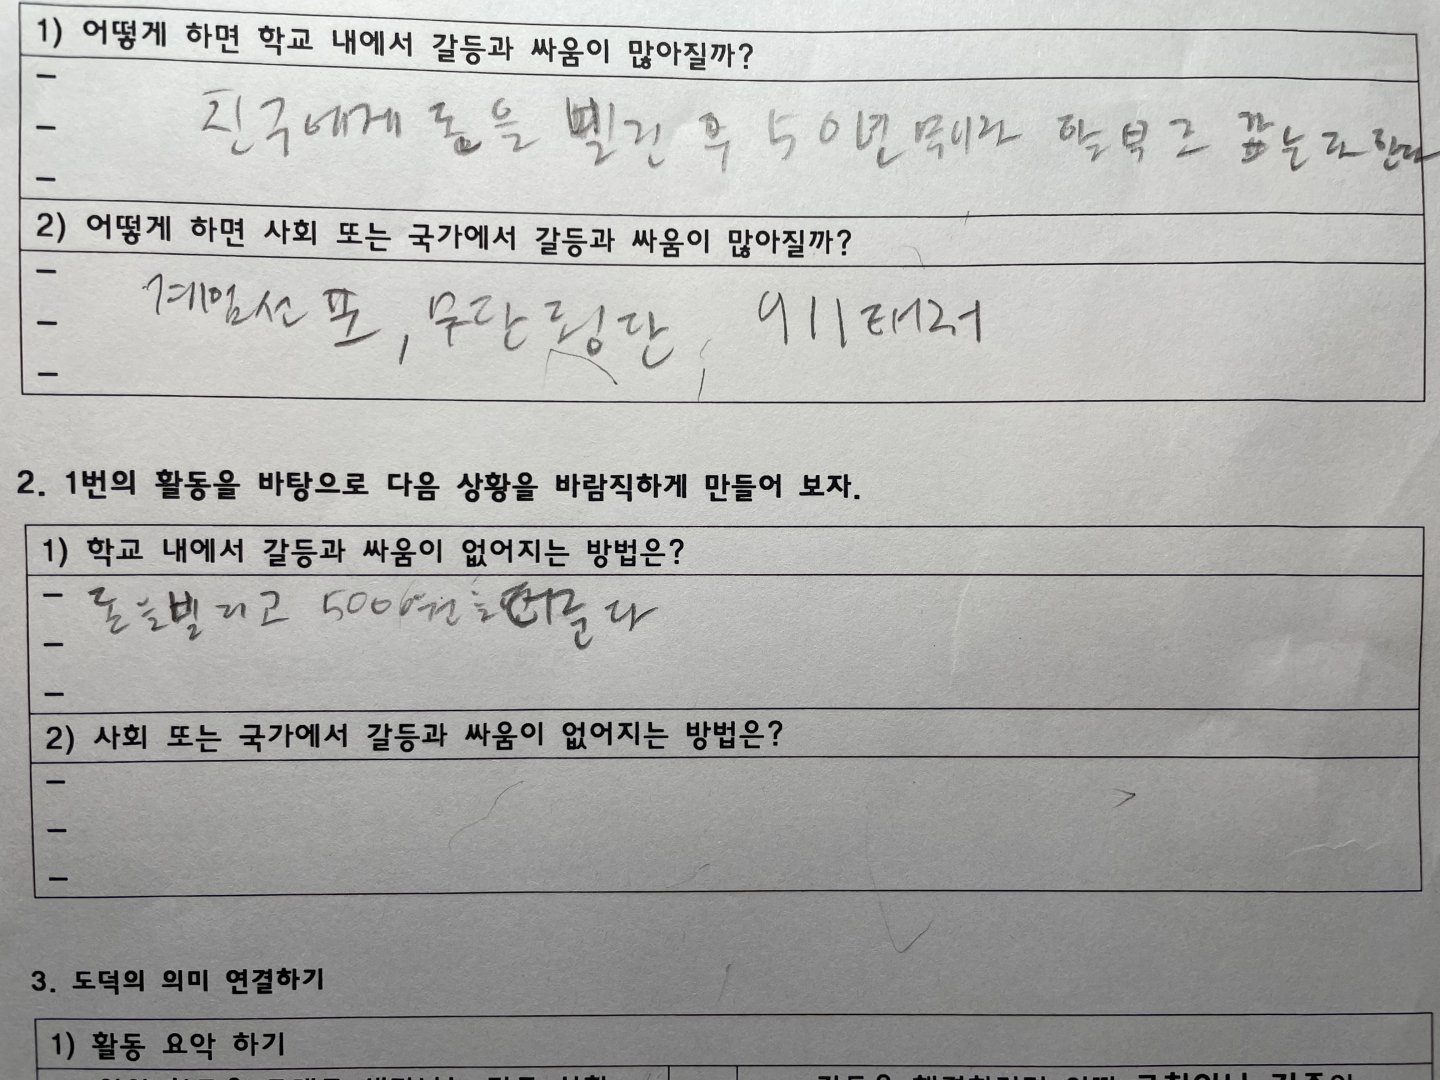 1) 어떻게 하면 학교 내에서 갈등과 싸움이 많아질까?
-
- 친구에게 돈을 빌린 후 50년 할부로 갚는다 한다
-
2) 어떻게 하면 사회 또는 국가에서 갈등과 싸움이 많아질까?
-
- 계엄선포, 무단 911테러
-
2. 1번의 활동을 바탕으로 다음 상황을 바람직하게 만들어 보자.
1) 학교 내에서 갈등과 싸움이 없어지는 방법은?
- 돈을빌리고 5000원을더준다
-
-
2) 사회 또는 국가에서 갈등과 싸움이 없어지는 방법은?
-
-
-
3. 도덕의 의미 연결하기
1) 활동 요약 하기